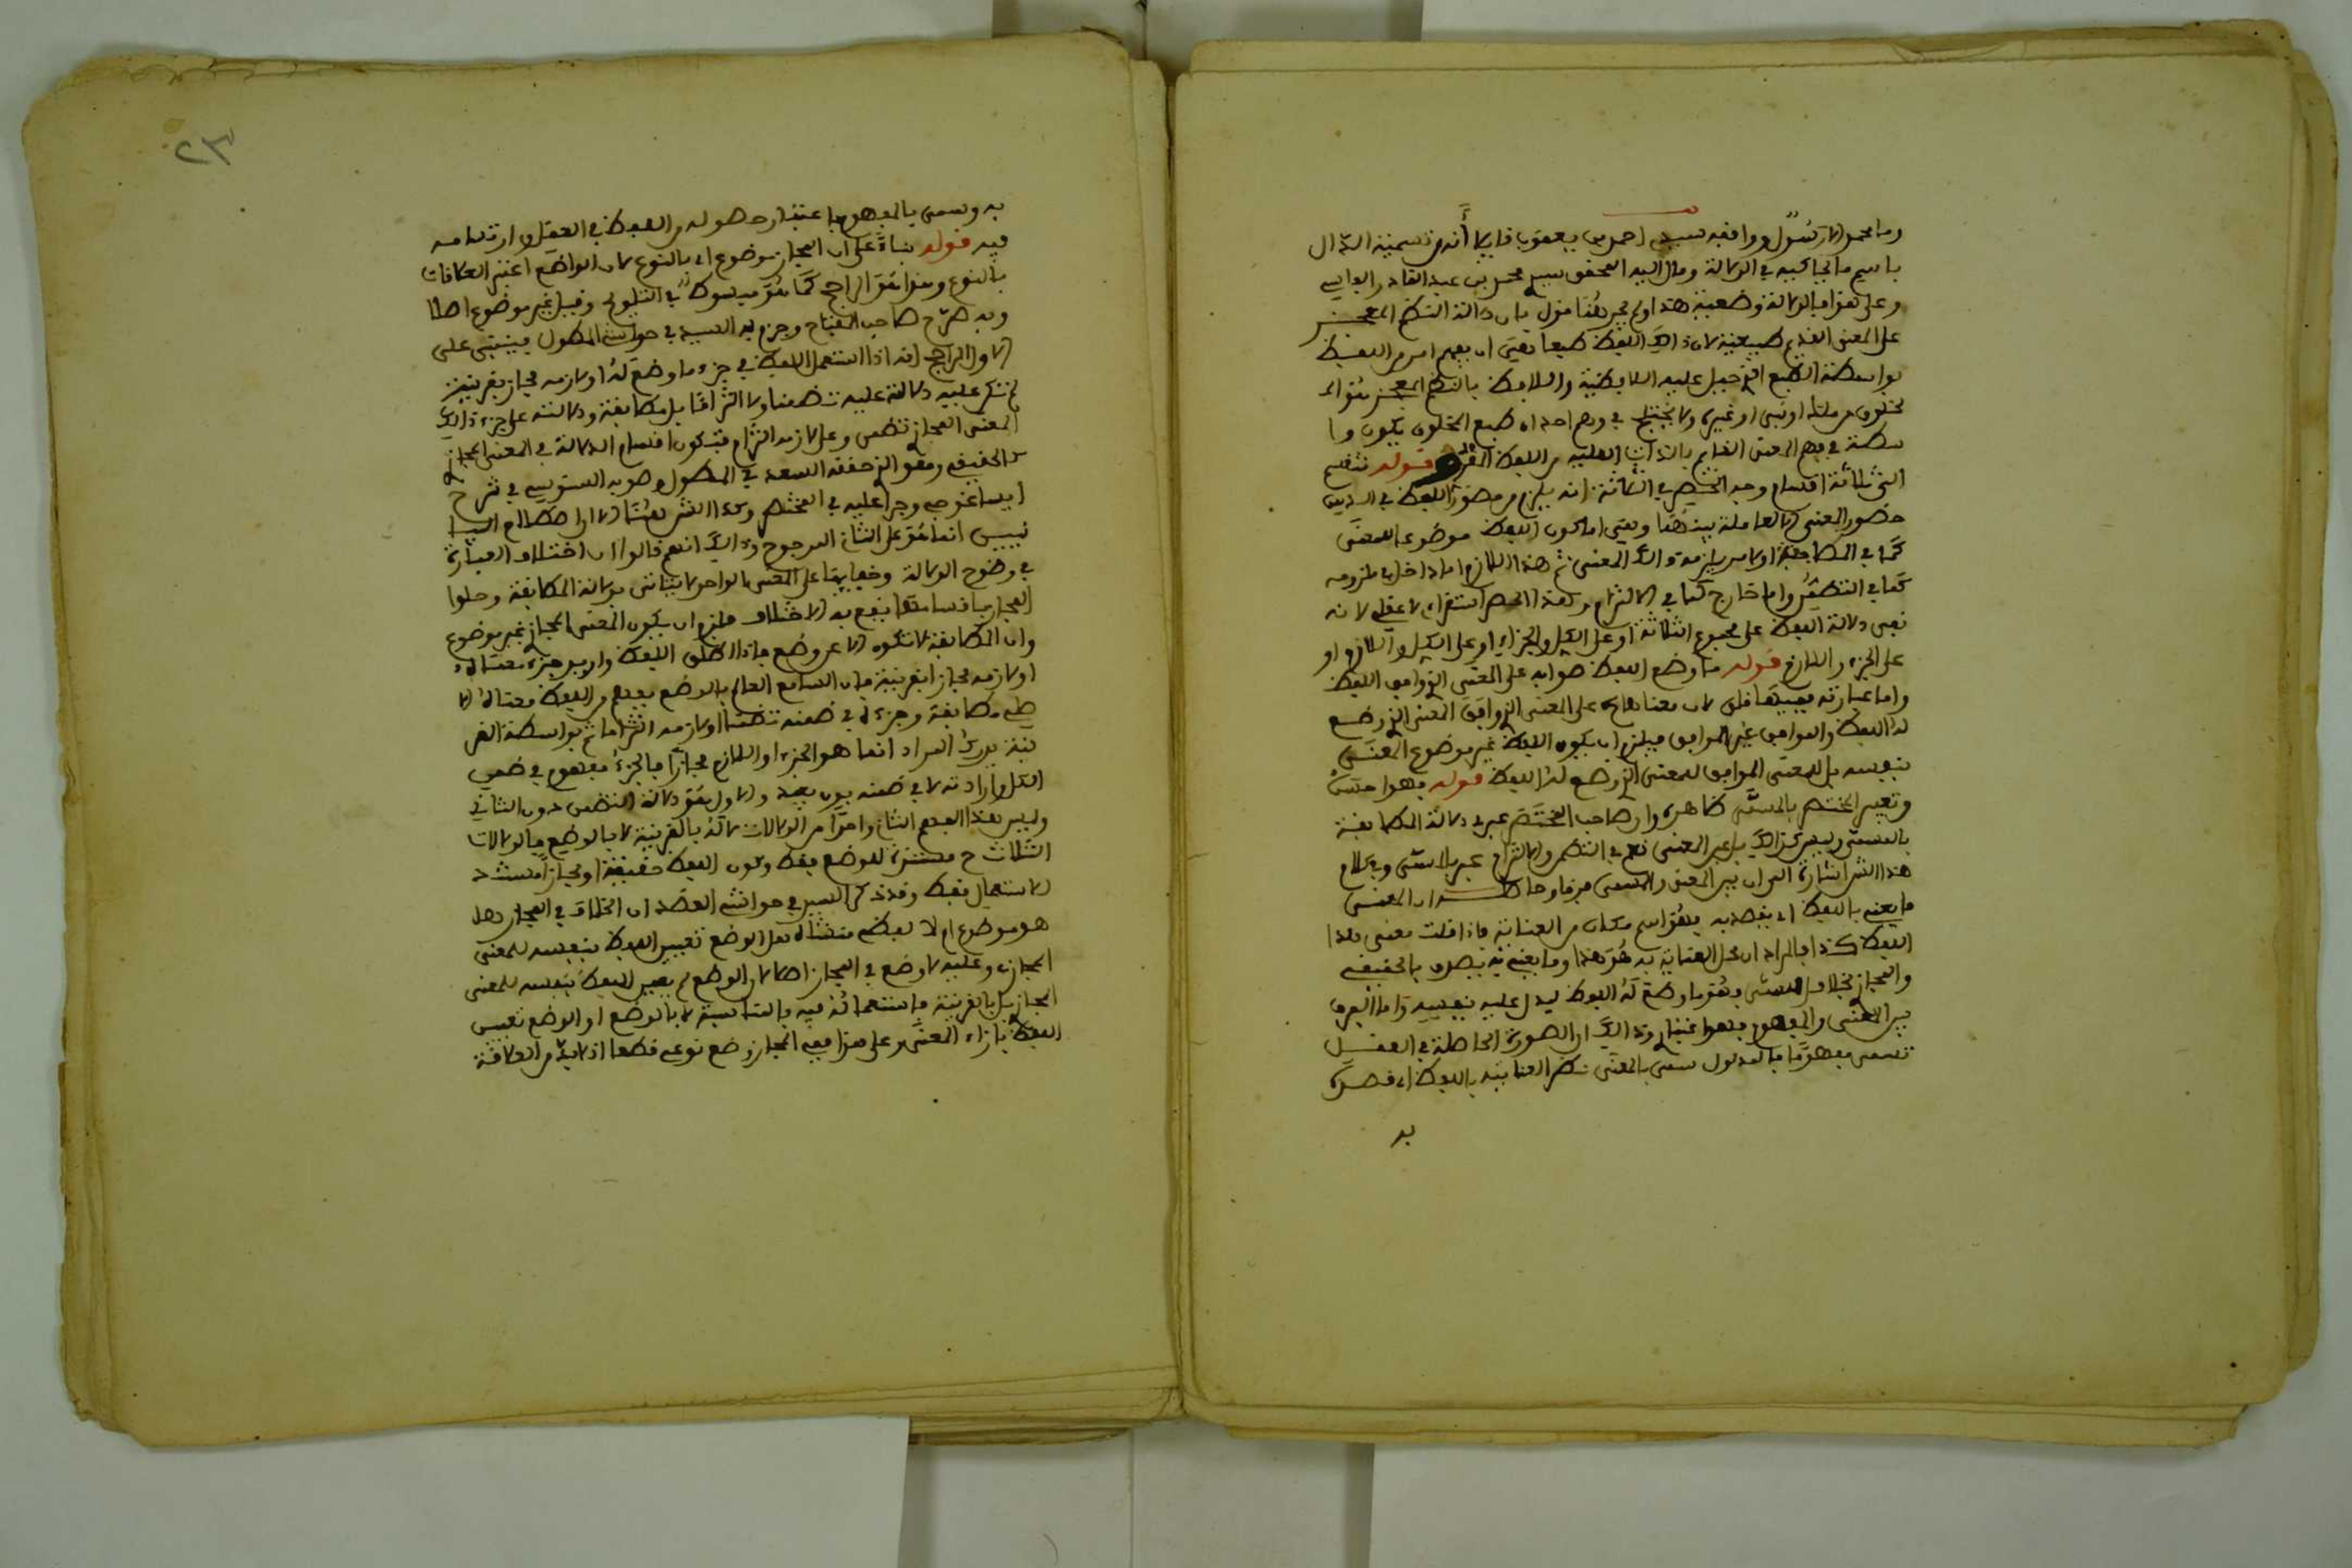 وما محمد الا رسول ووافقه سيدي احمد بن يعقوب قايلا أنه من تسمية الدال
باسم ما يجا كيه في الدلالة ومال اليه المحقق سيدي محمد بن عبد القادر الفاسي
وعلى هذا فالدلالة وضعية هذا ولم يجر هنا قول بان دلالة النظم المعجز
على المعنى القديم طبيعية لان ذلك اللفظ طبعا يقتضي ان يفهم امر من اللفظ
بواسطة الطبع الذي جبل عليه اللافظ واللافظ بالنظم المعجز هو المخلوق
من ملك او نبي او غيره ولا يختلج في وهم احد ان طبع المخلوق يكون وا
سطة في فهم المعنى القايم بالذات العلية من اللفظ المقروء قوله تنقسم
الى ثلاثة اقسام وجه الحصر في الثلاثة انه يلزم من حضور اللفظ في الذهن
حضور المعنى للعاملة بينهما ويعني اما كون اللفظ موضوعا للمعنى
كما في المطابقة او لامر يلزمه ذلك المعنى ثم هذا اللازم اما داخل في ملزومه
كما في التضمن واما خارج كما في الالتزام وهذا الحصر استقرائي لا عقلي لانه
بقي دلالة اللفظ على مجموع الثلاثة او على الكل والجزء او على الكل واللازم او
على الجزء واللازم قوله ما وضع اللفظ صوابه على المعنى الذي وافق اللفظ
واما عبارته ففيها قلق لان معناها على المعنى الذي وافق المعنى الذي وضع
له اللفظ والموافق غير الموافق فيلزم ان يكون اللفظ غير موضوع المعنى
بنفسه بل للمعنى الموافق للمعنى الذي وضع له اللفظ قوله فهو احسن
وتعبير المختصر بالمسمى ظاهره ان صاحب المختصر عبر في دلالة المطابقة
بالمسمى وليس كذلك بل عبر بالمعنى نعم في التضمن والالتزام عبر بالمسمى وفي كلام
هذا الشرح اشارة الى ان بين المعنى والمسمى فرقا وحاصله ان المعنى
ما يعنى باللفظ اي يقصد به فهو اسم مكان من العناية فاذا قلت معنى هذا
اللفظ كذا فالمراد ان محل العناية به هو هذا وما يعنى به يصدق بالحقيقي
والمجازي بخلاف المسمى فهو ما وضع له اللفظ ليدل عليه بنفسه واما الفرق
بين المعنى والمفهوم فهو اعتباري وذلك ان الصورة الحاصلة في العقل
تسمى مفهوما فالمدلول سمي بالمعنى نظرا لعنايته باللفظ اي قصده
به
٢٣
به وسمي بالمفهوم باعتبار حصوله من اللفظ في العقل وارتسامه
فيه قوله بناء على ان المجاز موضوع اي بالنوع لان الواضع اعتبر العلاقات
بالنوع وهذا هو الراجح كما هو مبسوط في التلويح وقيل غير موضوع اصلا
وبه صرح صاحب المفتاح وجزم به السيد في حواشي المطول فينبني على
الاول الراجح انه اذا استعمل اللفظ في جزء ما وضع له او لازمه مجازا بقرينة
لم تكن عليه دلالته عليه تضمنا ولا التزاما بل مطابقة ودلالته على جزء ذلك
المعنى المجازي تضمن وعلى لازمه التزام فتكون اقسام الدلالة في المعنى المجازي
كالحقيقي وهو الذي حققه السعد في المطول وصوبه السنوسي في شرح
ايساغوجي وجرى عليه في المختصر وهذا الشرح هنا الا ان اصطلاح البيا
نيين انما هو على الثاني المرجوح وذلك انهم قالوا ان اختلاف العبارة
في وضوح الدلالة وخفايها على المعنى الواحد لا يتاتى بدلالة المطابقة وجعلوا
المجاز باقسامه مما يقع به الاختلاف فلزم ان يكون المعنى المجازي غير موضوع
وان المطابقة لا تكون الا عن وضع فاذا اطلق اللفظ واريد جزء معناه
او لازمه مجازا بقرينة فان السامع العالم بالوضع يفهم من اللفظ معناه الا
صلي مطابقة وجزءه في ضمنه تضمنا او لازمه التزاما ثم بواسطة القر
ينة يدرك المراد انما هو الجزء او اللازم مجازا فالجزء مفهوم في ضمن
الكل وارادته لا في ضمنه بون بعيد والاول هو دلالة التضمن دون الثاني
وليس هذا الفهم الثاني واحدا من الدلالات لانه بالقرينة لا بالوضع فالدلالات
الثلاث ح مستندة للوضع فقط وكون اللفظ حقيقة او مجازا مستند
للاستعمال فقط وقد ذكر السيد في حواشي العضد ان الخلاف في المجاز هل
هو موضوع ام لا لفظي منشاه هل الوضع تعيين اللفظ بنفسه للمعنى
المجازي وعليه لا وضع في المجاز اصلا لان الوضع لم يعين اللفظ بنفسه للمعنى
المجازي بل بالقرينة فاستعماله فيه بالمناسبة لا بالوضع او الوضع تعيين
اللفظ بازاء المعنى وعلى هذا ففي المجاز وضع نوعي قطعا اذ لا بد من العلاقة